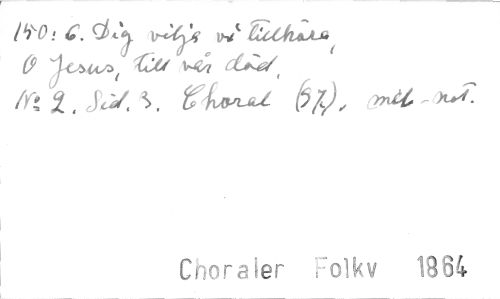 150:6. Dig vilja vi tillhöra,
O Jesus, till vår död.
No 2. Sid. 3. Choral (97), mel-not.
Choraler Folkv 1864